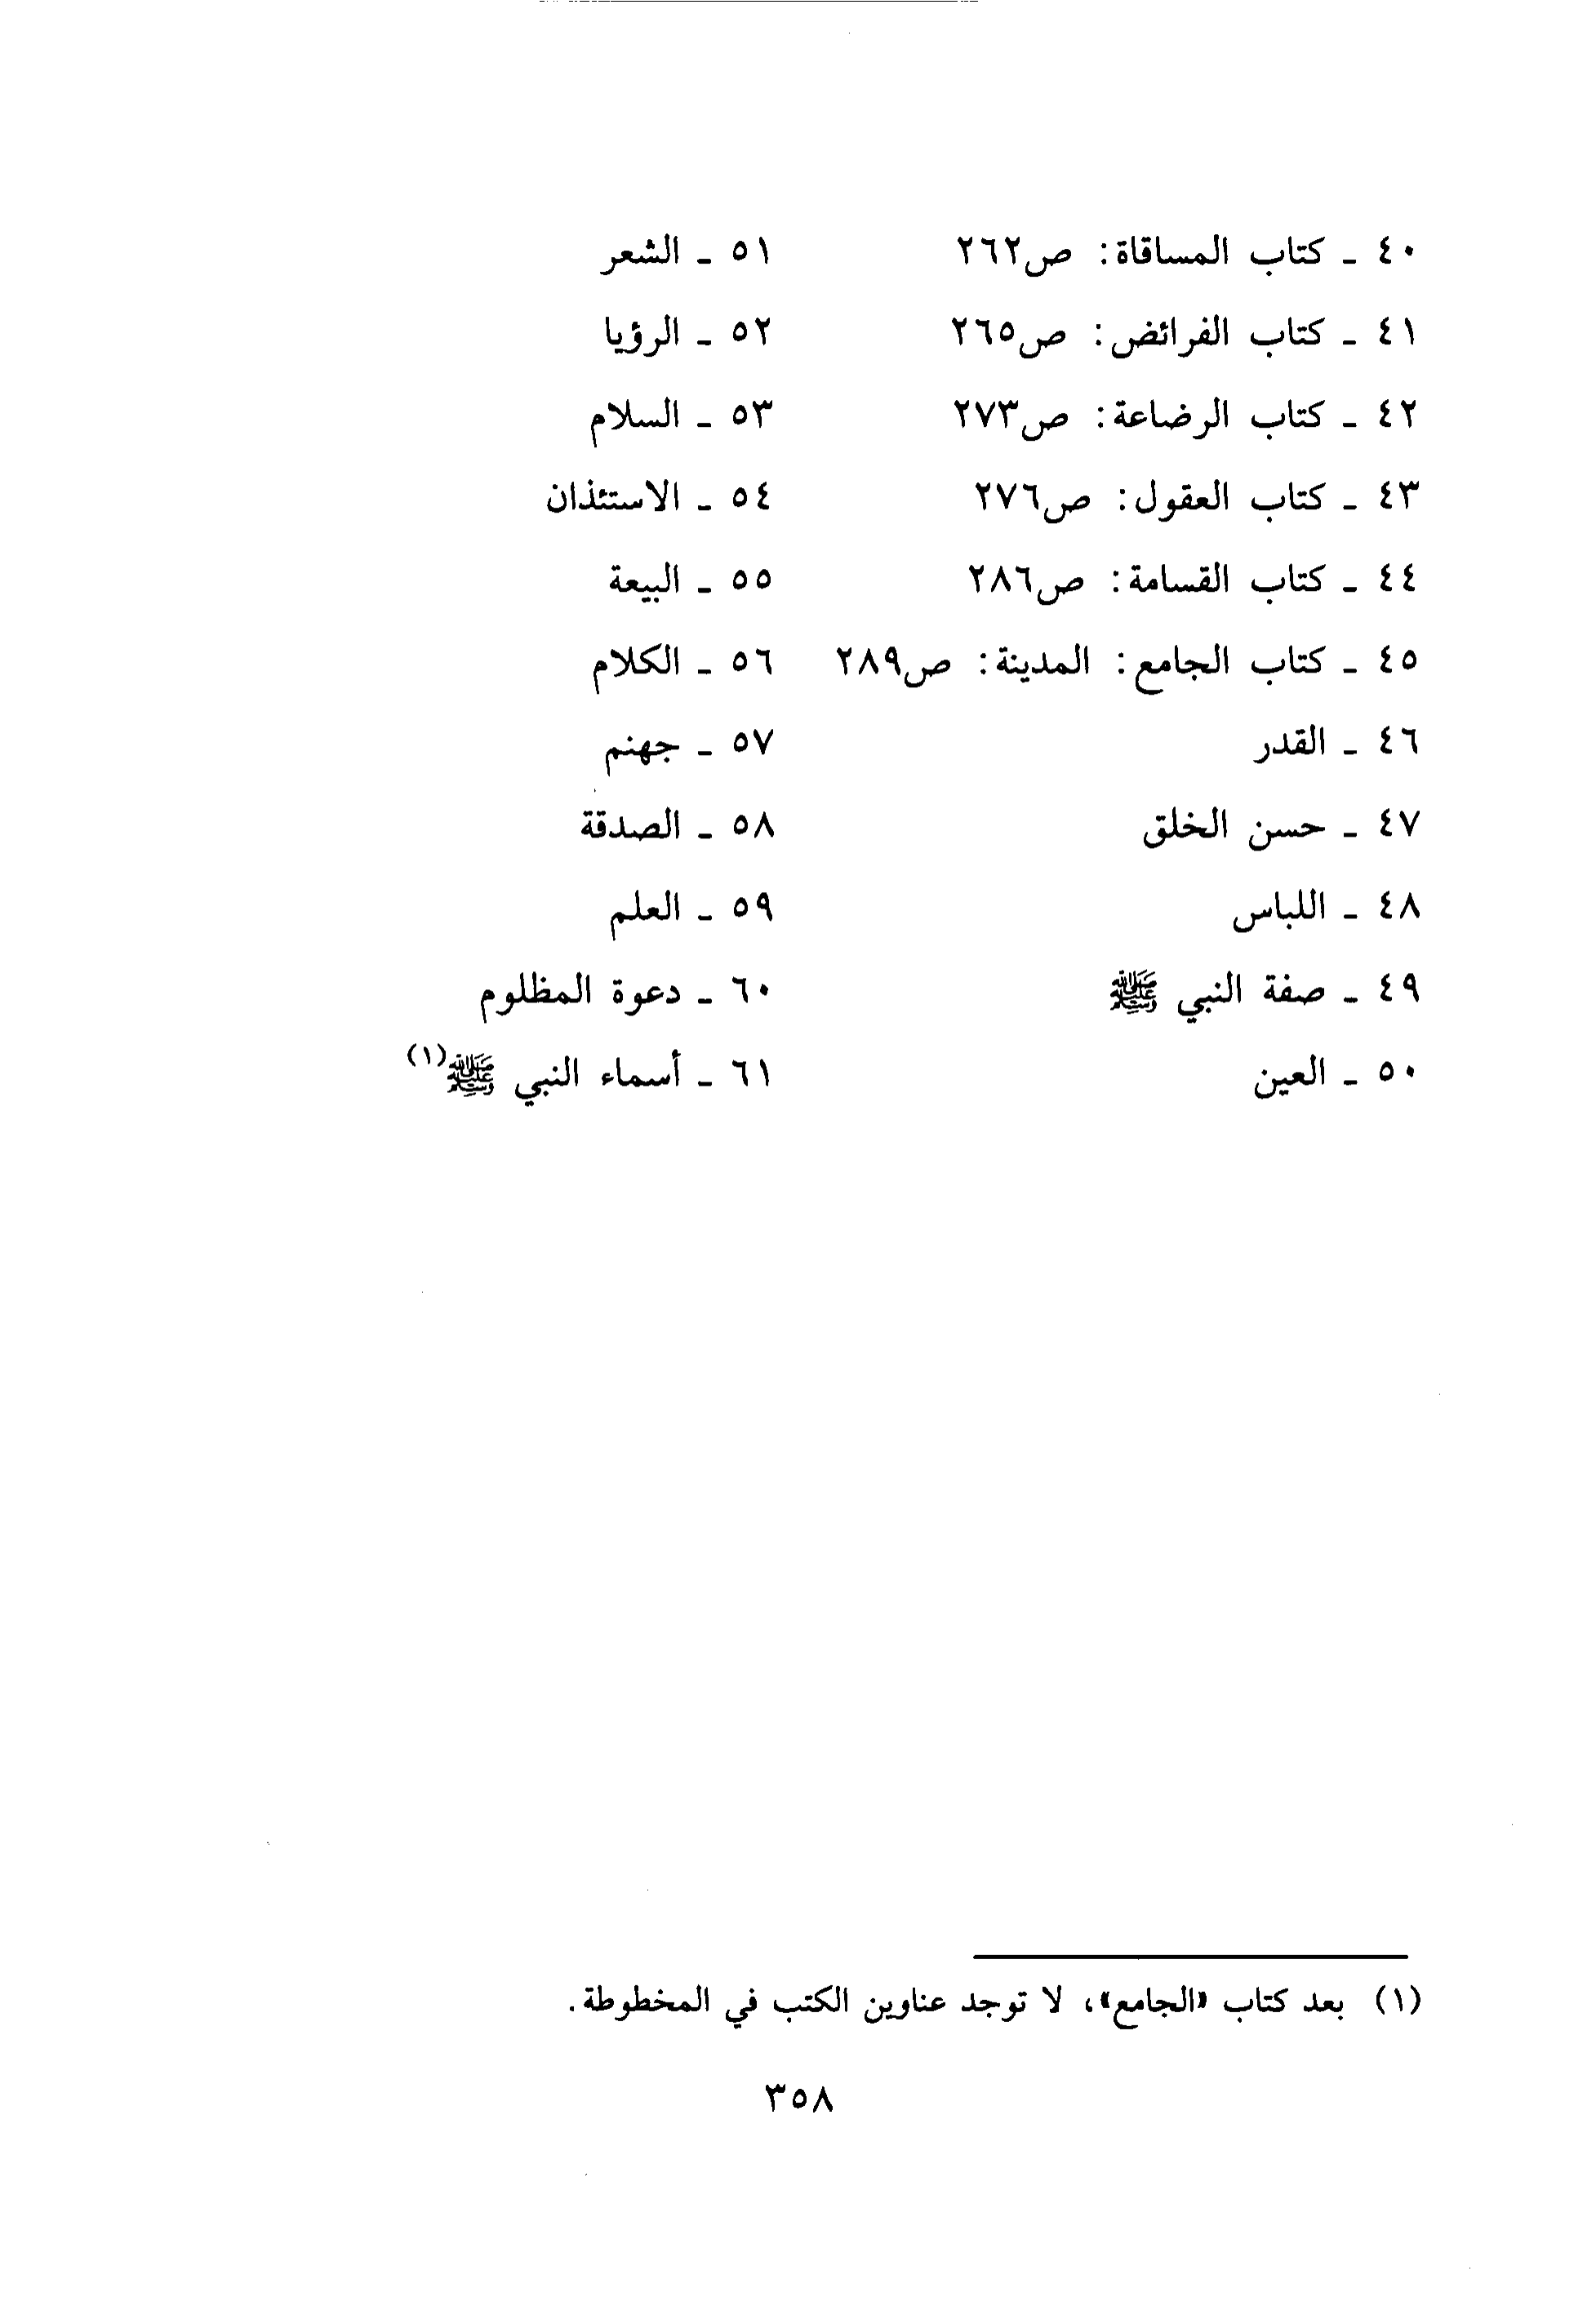 ٤٠ ـ كتاب المساقاة: ص٢٦٢
٤١ ـ كتاب الفرائض: ص٢٦٥
٤٢ ـ كتاب الرضاعة: ص٢٧٣
٤٣ ـ كتاب العقول: ص٢٧٦
٤٤ ـ كتاب القسامة: ص٢٨٦
٤٥ ـ كتاب الجامع: المدينة: ص٢٨٩
٤٦ ـ القدر
٤٧ ـ حسن الخلق
٤٨ ـ اللباس
٤٩ ـ صفة النبي ﷺ
٥٠ ـ العين
٥١ ـ الشعر
٥٢ ـ الرؤيا
٥٣ ـ السلام
٥٤ ـ الاستئذان
٥٥ ـ البيعة
٥٦ ـ الكلام
٥٧ ـ جهنم
٥٨ ـ الصدقة
٥٩ ـ العلم
٦٠ ـ دعوة المظلوم
٦١ ـ أسماء النبي ﷺ(١)
(١) بعد كتاب «الجامع»، لا توجد عناوين الكتب في المخطوطة.
٣٥٨